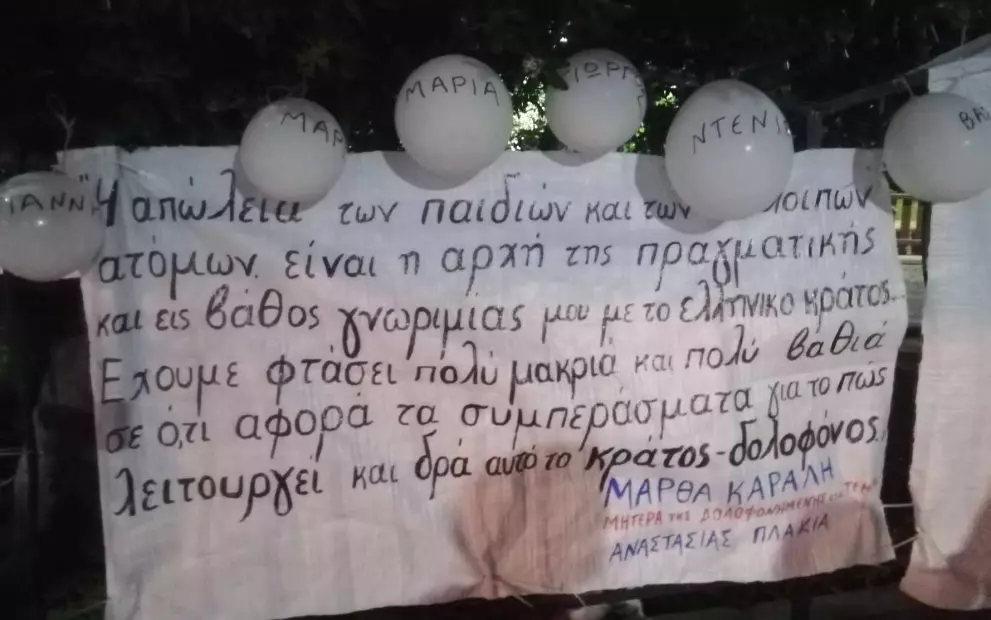 ΜΑΡΙΑ
ΜΑΡ
ΓΙΩΡΓ
ΝΤΕΝΙ
ΒΑΪ
ΙΑΝΝ
"Η απώλεια των παιδιών και των λοιπών
ατόμων. είναι η αρχή της πραγματικής
και εις βάθος γνωριμίας μου με το ελληνικο κράτος..
Εχουμε φτάσει πολύ μακριά και πολύ βαθιά
σε ό,τι αφορά τα συμπεράσματα για το πώς
λειτουργεί και δρά αυτό το κράτος-δολοφόνος.
ΜΑΡΘΑ ΚΑΡΑΛΗ
ΜΗΤΕΡΑ της ΔΟΛΟΦΟΝΗΜΕΝΗΣ
ΑΝΑΣΤΑΣΙΑΣ ΠΛΑΚΙΑ